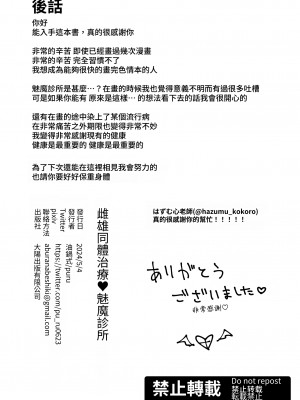 後話
你好
能入手這本書，真的很感謝你
非常的辛苦 即使已經畫過幾次漫畫
非常的辛苦 完全習慣不了
我想成為能夠很快的畫完色情本的人
魅魔診所是甚麼…？在畫的時候我也覺得意義不明而有過很多吐槽
可是如果你能有 原來是這樣 的想法看下去的話我會很開心的
還有在畫的途中染上了某個流行病
在非常痛苦之外期限也變得非常不妙
我變得非常感謝現有的健康
健康是最重要的 健康是最重要的
為了下次還能在這裡相見我會努力的
也請你要好好保重身體
はずむ心老師(@hazumu_kokoro)
真的很感謝你的幫忙！！！！！
雌雄同體治療♥魅魔診所
發行日 2024/5/4
發行者 油鍋式/puru
Twitter https://twitter.com/pu_ru0623
pixiv
聯絡方法 aburanabeshiki@gmail.com
出版社 大陽出版有限公司
ありがとう
ございました♡
非常感謝♡
禁止轉載
Do not repost
転載禁止